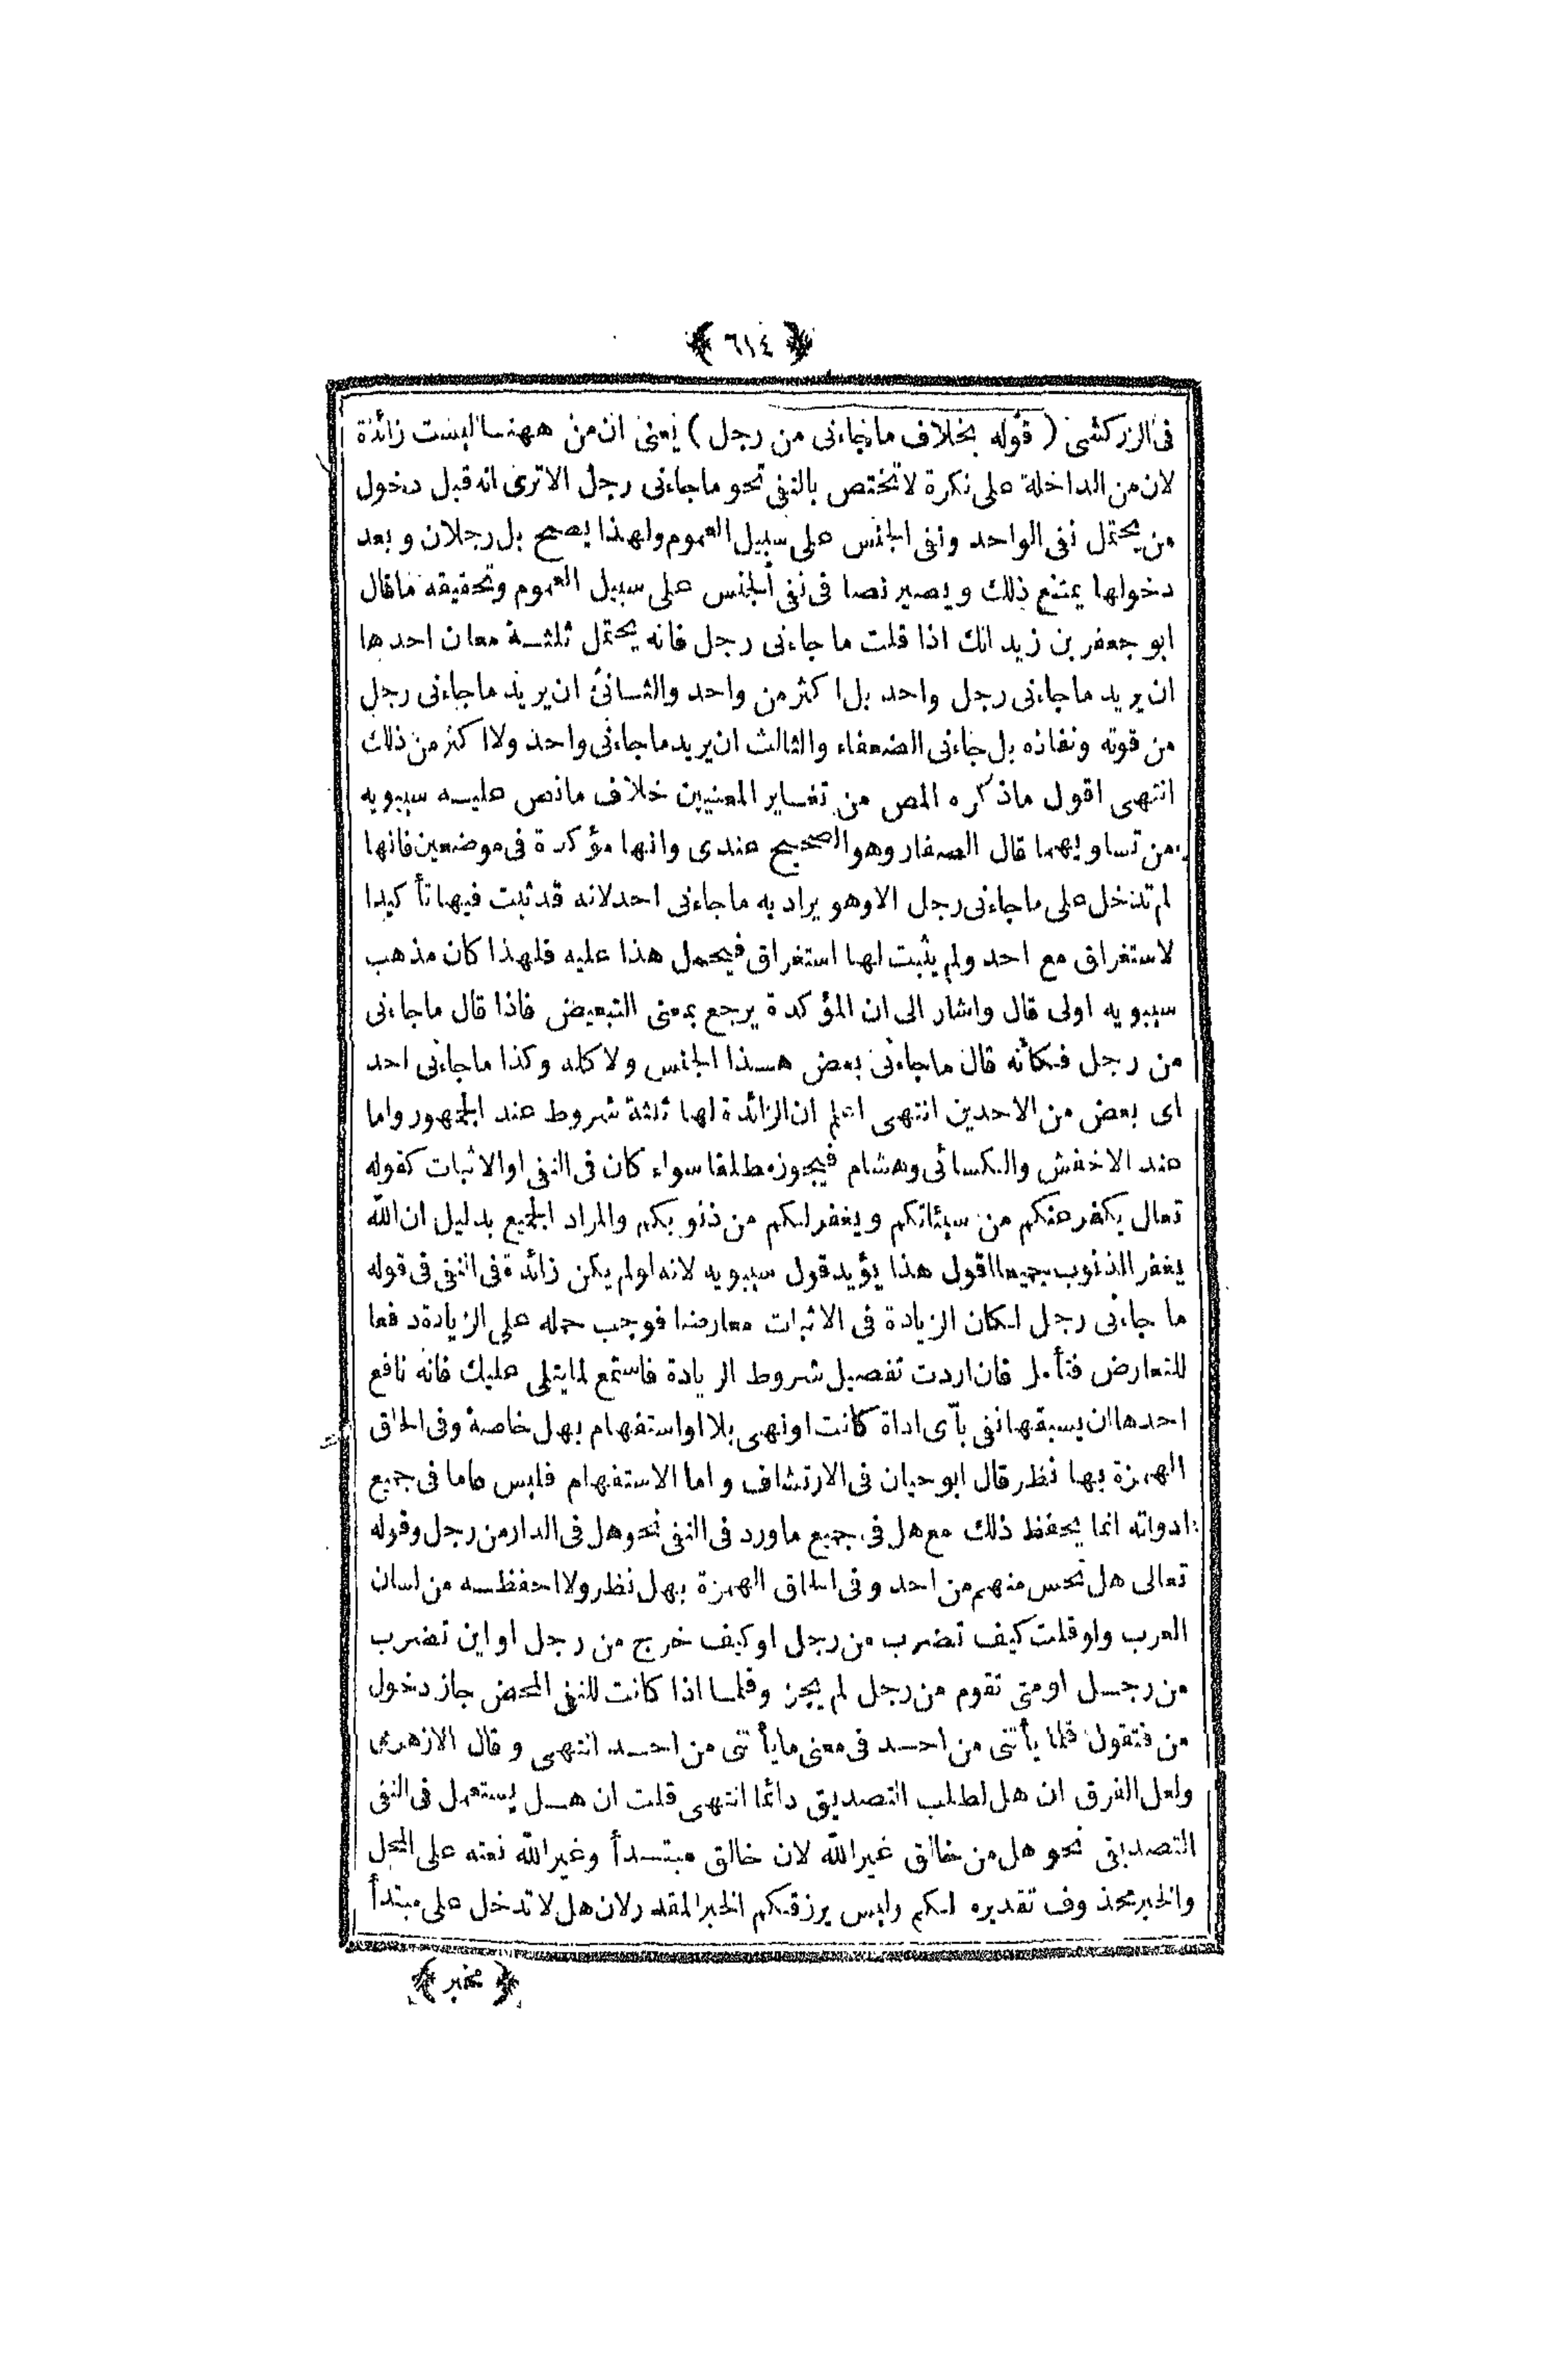 ﴿ ٦١٤ ﴾
فى الزركشى ( قوله بخلاف ماجاءنى من رجل ) يعنى ان من ههنا ليست زائدة
لان من الداخلة على نكرة لاتختص بالنفى نحو ماجاءنى رجل الاترى انه قبل دخول
من يحتمل نفى الواحد ونفى الجنس على سبيل العموم ولهذا يصح بل رجلان و بعد
دخولها يمتنع ذلك ويصير نصا فى نفى الجنس على سبيل العموم وتحقيقه ماقال
ابو جعفر بن زيد انك اذا قلت ما جاءنى رجل فانه يحتمل ثلثة معان احدها
ان يريد ماجاءنى رجل واحد بل اكثر من واحد والثانى ان يريد ماجاءنى رجل
من قوته ونفاذه بل جاءنى الضعفاء والثالث ان يريد ماجاءنى واحد ولا اكثر من ذلك
انتهى اقول ماذكره المص من تفسير المعنيين خلاف مانص عليه سيبويه
من تساويهما قال الصفار وهو الصحيح عندى وانها مؤكدة فى موضعين فانها
لم تدخل على ماجاءنى رجل الا وهو يراد به ماجاءنى احد لانه قد ثبت فيها تأكيدا
لاستغراق مع احد ولم يثبت لها استغراق فيحمل هذا عليه فلهذا كان مذهب
سيبويه اولى قال واشار الى ان المؤكدة يرجع بمعنى التبعيض فاذا قال ماجاءنى
من رجل فكأنه قال ماجاءنى بعض هذا الجنس ولا كله وكذا ماجاءنى احد
اى بعض من الاحدين انتهى اعلم ان الزائدة لها ثلثة شروط عند الجمهور واما
عند الاخفش والكسائى وهشام فيجوز مطلقا سواء كان فى النفى او الاثبات كقوله
تعالى يكفر عنكم من سيئاتكم ويغفر لكم من ذنوبكم والمراد الجميع بدليل ان الله
يغفر الذنوب جميعا اقول هذا يؤيد قول سيبويه لانه لولم يكن زائدة فى النفى فى قوله
ما جاءنى رجل لكان الزيادة فى الاثبات معارضا فوجب حمله على الزيادة دفعا
للتعارض فتأمل فان اردت تفصيل شروط الزيادة فاستمع لمايتلى عليك فانه نافع
احدها ان يسبقها نفى بأى اداة كانت او نهى بلا او استفهام بهل خاصة وفى الحاق
الهمزة بها نظر قال ابو حيان فى الارتشاف واما الاستفهام فليس عاما فى جميع
ادواته انما يحفظ ذلك مع هل فى جميع ماورد فى النفى نحو هل فى الدار من رجل وقوله
تعالى هل تحس منهم من احد وفى الحاق الهمزة بهل نظر ولا احفظه من لسان
العرب ولو قلت كيف تضرب من رجل او كيف خرج من رجل او اين تضرب
من رجل او متى تقوم من رجل لم يجز وقلما اذا كانت للنفى المحض جاز دخول
من فتقول قلما يأتنى من احد فى معنى مايأتنى من احد انتهى وقال الازهرى
ولعل الفرق ان هل لطلب التصديق دائما انتهى قلت ان هل يستعمل فى النفى
التصديق نحو هل من خالق غير الله لان خالق مبتدأ وغير الله نعته على المحل
والخبر محذوف تقديره لكم وليس يرزقكم الخبر المقدر لان هل لا تدخل على مبتدأ
﴿ مخبر ﴾